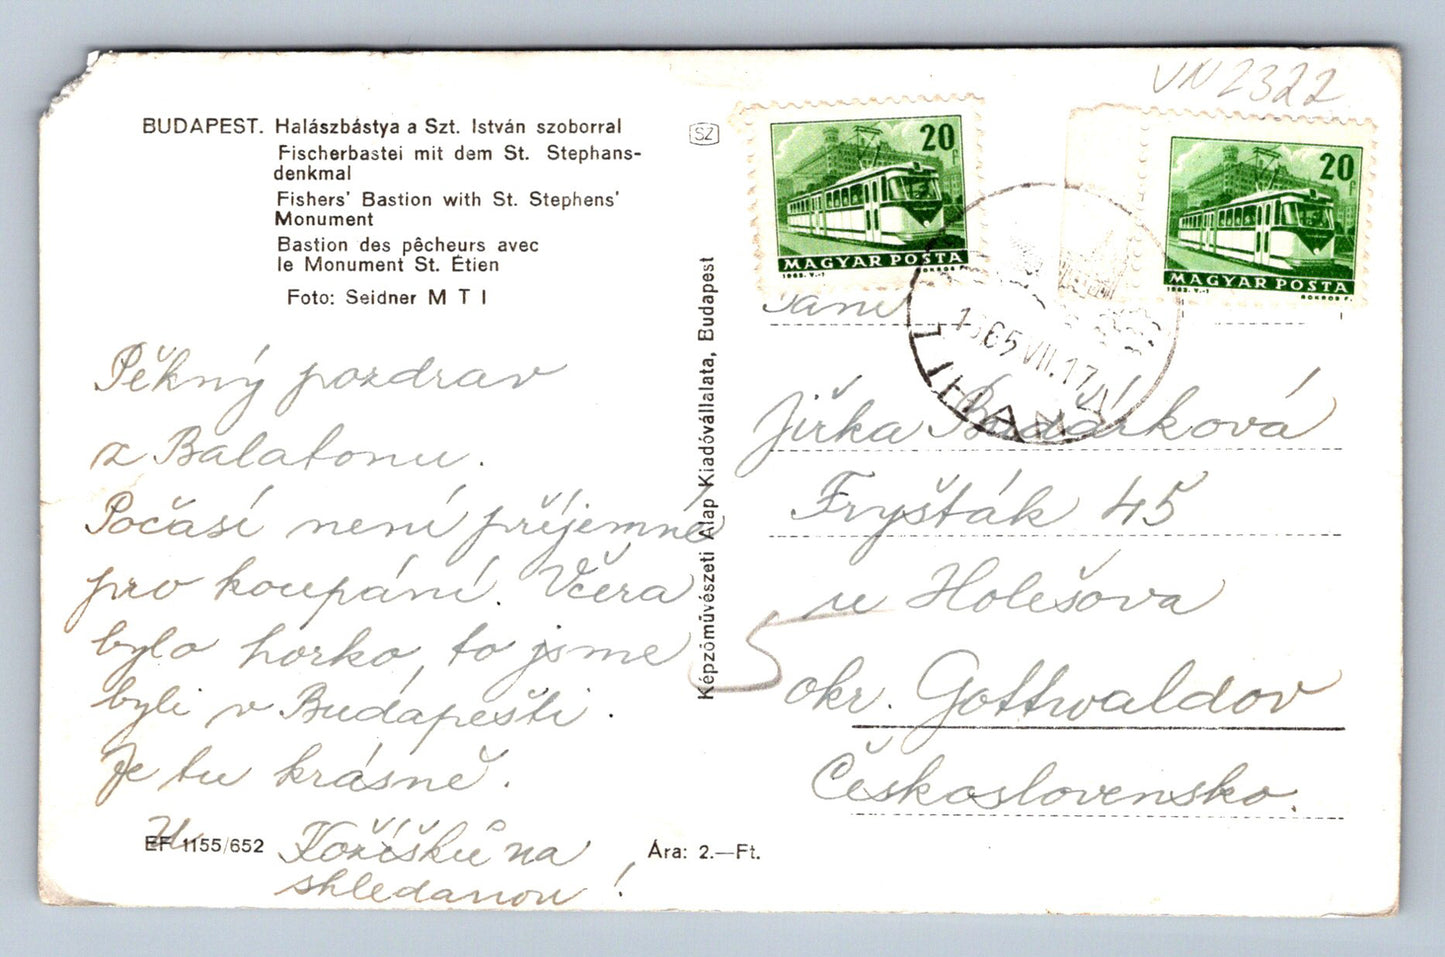 VN2322
BUDAPEST. Halászbástya a Szt. István szoborral
Fischerbastei mit dem St. Stephans-
denkmal
Fishers' Bastion with St. Stephens'
Monument
Bastion des pêcheurs avec
le Monument St. Étien
Foto: Seidner M T I
SZ
20 f
MAGYAR POSTA
1963. V.-1 BOKROS F.
20 f
MAGYAR POSTA
1963. V.-1 BOKROS F.
1965 VII. 17
TIHANY
Képzőművészeti Alap Kiadóvállalata, Budapest
Pěkný pozdrav
z Balatonu.
Počasí není příjemné
pro koupání. Včera
bylo horko, to jsme
byli v Budapešti.
Je tu krásně.
U Kožíšků na
shledanou!
EF 1155/652
Ára: 2.—Ft.
Paní
Jiřka Badárková
Fryšták 45
u Holešova
5
okr. Gottwaldov
Československo.